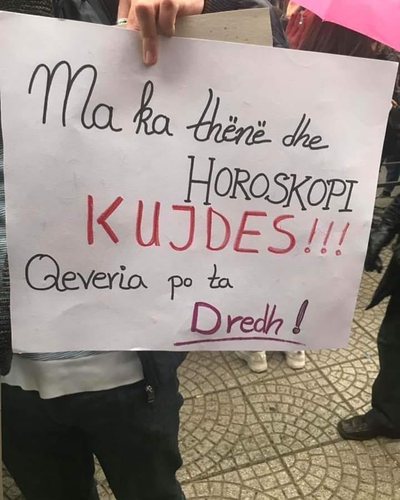 Ma ka thënë dhe
HOROSKOPI
KUJDES!!!
Qeveria po ta
Dredh!